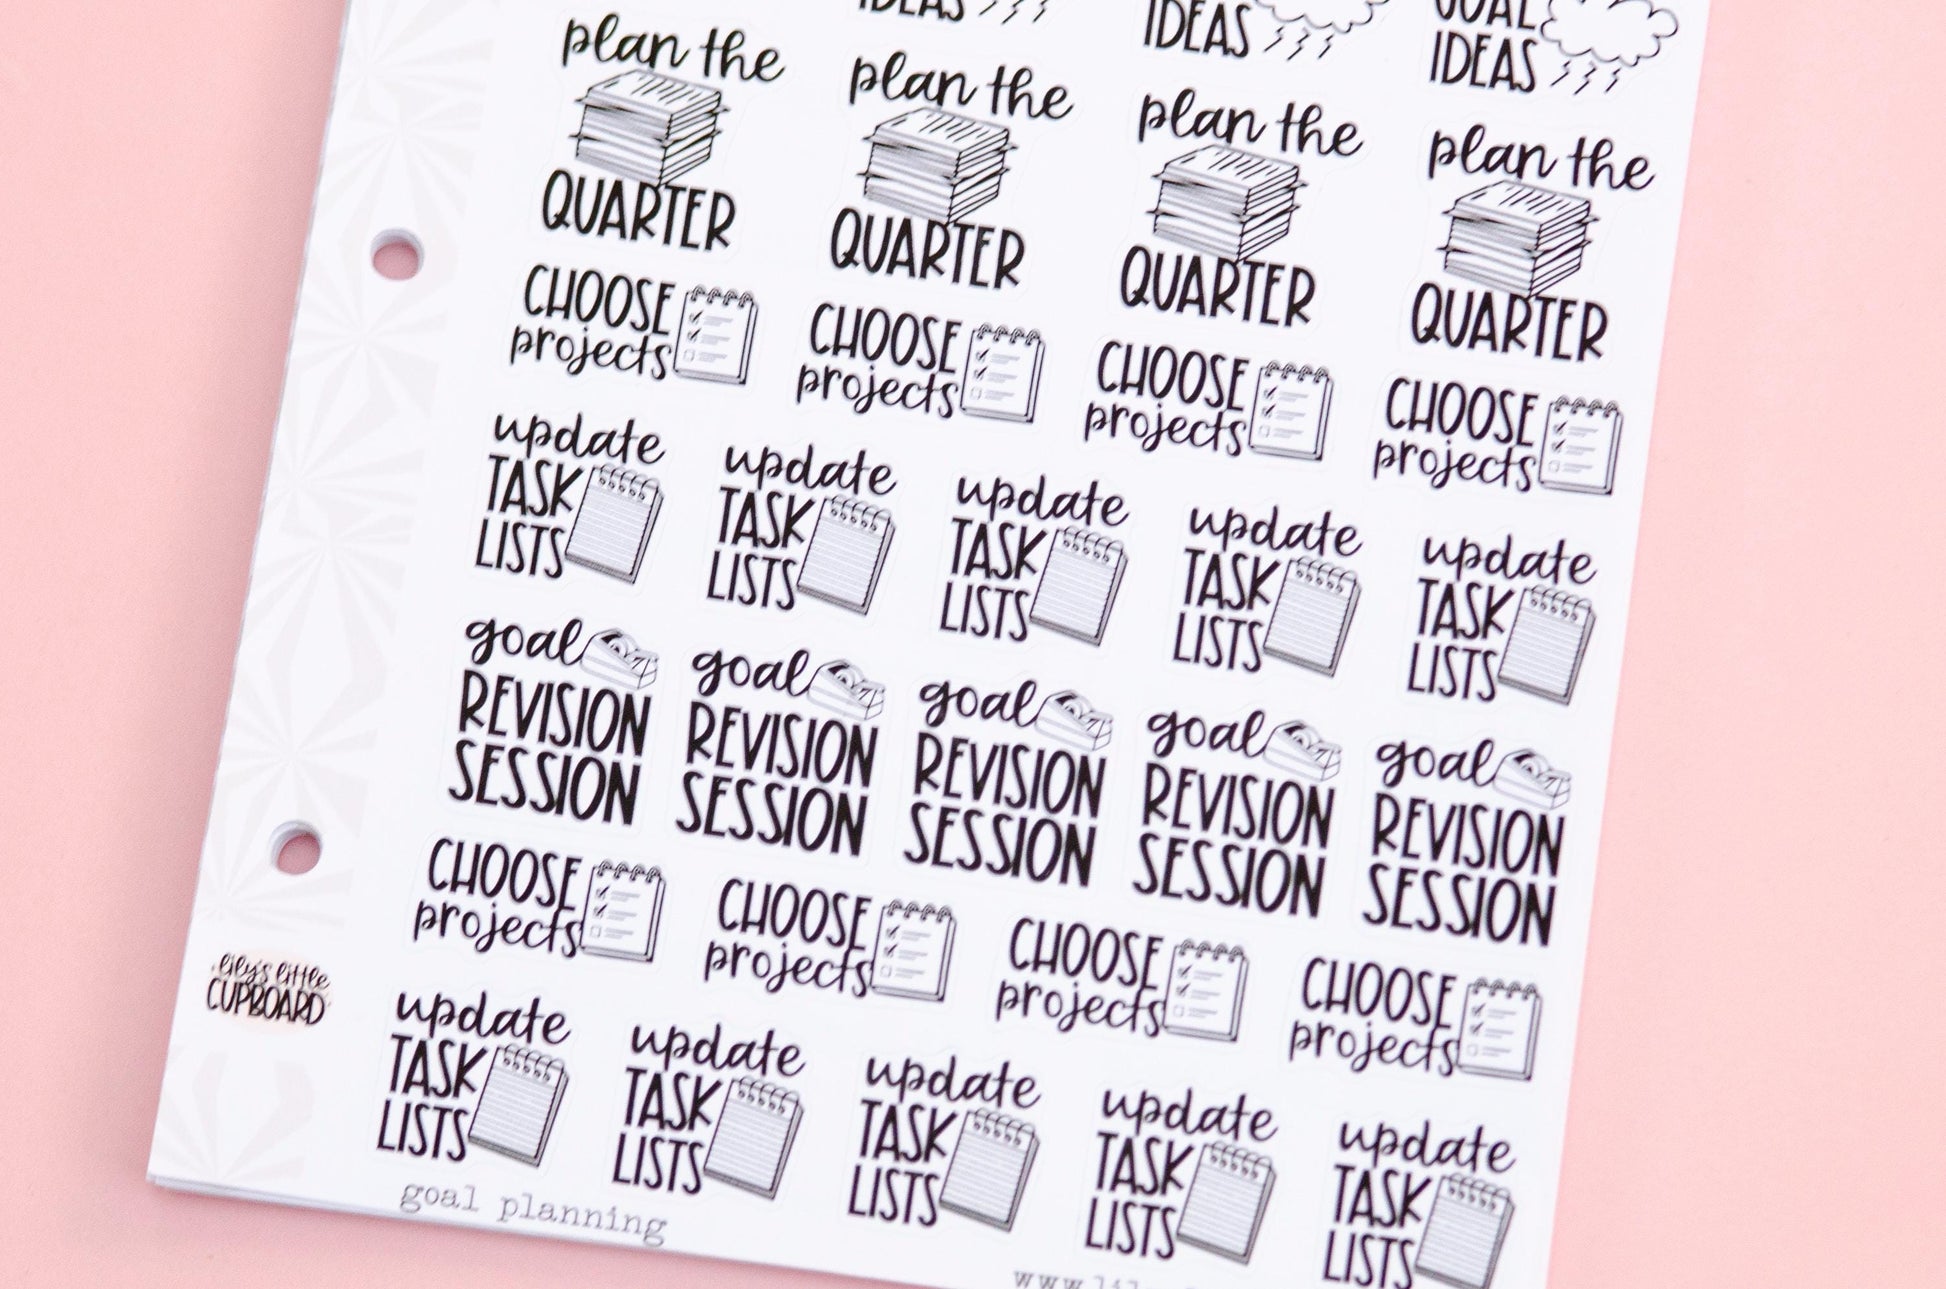 IDEAS
IDEAS
GOAL
IDEAS
plan the
QUARTER
plan the
QUARTER
plan the
QUARTER
plan the
QUARTER
CHOOSE
projects
CHOOSE
projects
CHOOSE
projects
CHOOSE
projects
update
TASK
LISTS
update
TASK
LISTS
update
TASK
LISTS
update
TASK
LISTS
update
TASK
LISTS
goal
REVISION
SESSION
goal
REVISION
SESSION
goal
REVISION
SESSION
goal
REVISION
SESSION
goal
REVISION
SESSION
CHOOSE
projects
CHOOSE
projects
CHOOSE
projects
CHOOSE
projects
lily's little
CUPBOARD
update
TASK
LISTS
update
TASK
LISTS
update
TASK
LISTS
update
TASK
LISTS
update
TASK
LISTS
goal planning